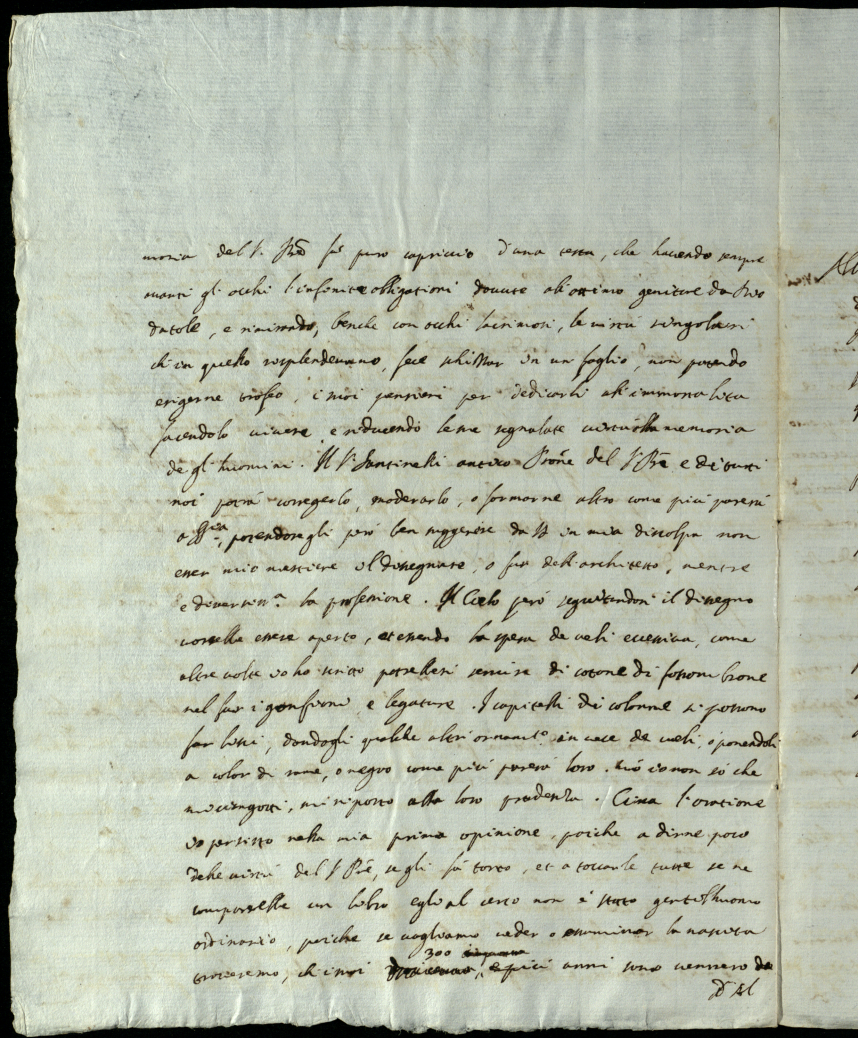 moria del S. Pre fu puro capriccio d'una testa, che havendo sempre
avanti gl'occhi l'infinite obligationi dovute all'ottimo genitore da Dio
datole, e rimirando, benche con occhi lacrimosi, le virtù singolari
ch'in questo risplendevano, fece schizzar in un foglio, non potendo
erigerne trofeo, i suoi pensieri per dedicarli all'immortalita
facendolo vivere, e riducendo le sue segnalate virtù alla memoria
de gl'huomini. Il S. Santinelli antico Prone del S. Pre e di tutti
noi potrà corregerlo, moderarlo, o formarne altro come più parerà
a potendosegli però ben suggerire da in mia discolpa non
esser mio mestiere il dissegnare, o far dell'architetto, mentre
è diversiss.a la professione. Il Cielo però seguitandosi il dissegno
vorrebbe essere aperto, et essendo la spesa de veli eccessiva, come
altre volte io ho scritto potrebbesi servire di cotone di fossombrone
nel far i gonfioni, e legature. I capitelli di colonne si possono
far lisci, dandogli qualche altri ornamti in vece de veli, o ponendoli
a color di rame, o negro come più parerà loro. Ciò io non so che
mi ci ingotti, mi riporto alla loro prudenza. Circa l'oratione
io persisto nella mia prima opinione, poiche a dirne poco
delle virtù del S. Pre, se gli fà torto, et a toccarle tutte se ne
comporrebbe un libro egli al certo non è stato gentilhuomo
ordinario, poiche se vogliamo veder o esaminar la nascita
300
troveremo, ch'i suoi e più anni sono vennero da